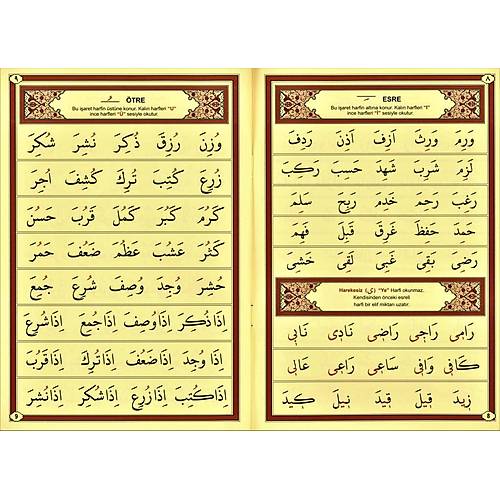 ٨
ESRE
Bu işaret harfin altına konur. Kalın harfleri "I"
ince harfleri "İ" sesiyle okutur.
وَرِمَ وَرِثَ اَزِفَ اَذِنَ رَدِفَ
لَزِمَ شَرِبَ شَهِدَ حَسِبَ رَكِبَ
رَغِبَ رَحِمَ خَدِمَ رَبِحَ سَلِمَ
حَمِدَ حَفِظَ غَرِقَ قَبِلَ فَهِمَ
رَضِىَ بَقِىَ غَبِىَ لَقِىَ خَشِىَ
Harekesiz (ي) "Ye" Harfi okunmaz.
Kendisinden önceki esreli
harfi bir elif miktarı uzatır.
رَامِى رَاجِى رَاضِى نَادِى نَابِى
كَافِى وَافِى سَاعِى رَاعِى عَالِى
زِيدَ قِيلَ قِيدَ نِيلَ كِيدَ
8
٩
ÖTRE
Bu işaret harfin üstüne konur. Kalın harfleri "U"
ince harfleri "Ü" sesiyle okutur.
وُزِنَ رُزِقَ ذُكِرَ نُشِرَ شُكِرَ
زُرِعَ كُتِبَ تُرِكَ كُشِفَ اُجِرَ
كَرُمَ كَبُرَ كَمُلَ قَرُبَ حَسُنَ
كَثُرَ عَشُبَ عَظُمَ ضَعُفَ حَمُرَ
حُشِرَ وُجِدَ وُصِفَ شُرِعَ جُمِعَ
اِذَا ذُكِرَ اِذَا وُصِفَ اِذَا جُمِعَ اِذَا شُرِعَ
اِذَا وُجِدَ اِذَا ضَعُفَ اِذَا تُرِكَ اِذَا قَرُبَ
اِذَا كُتِبَ اِذَا زُرِعَ اِذَا شُكِرَ اِذَا نُشِرَ
9